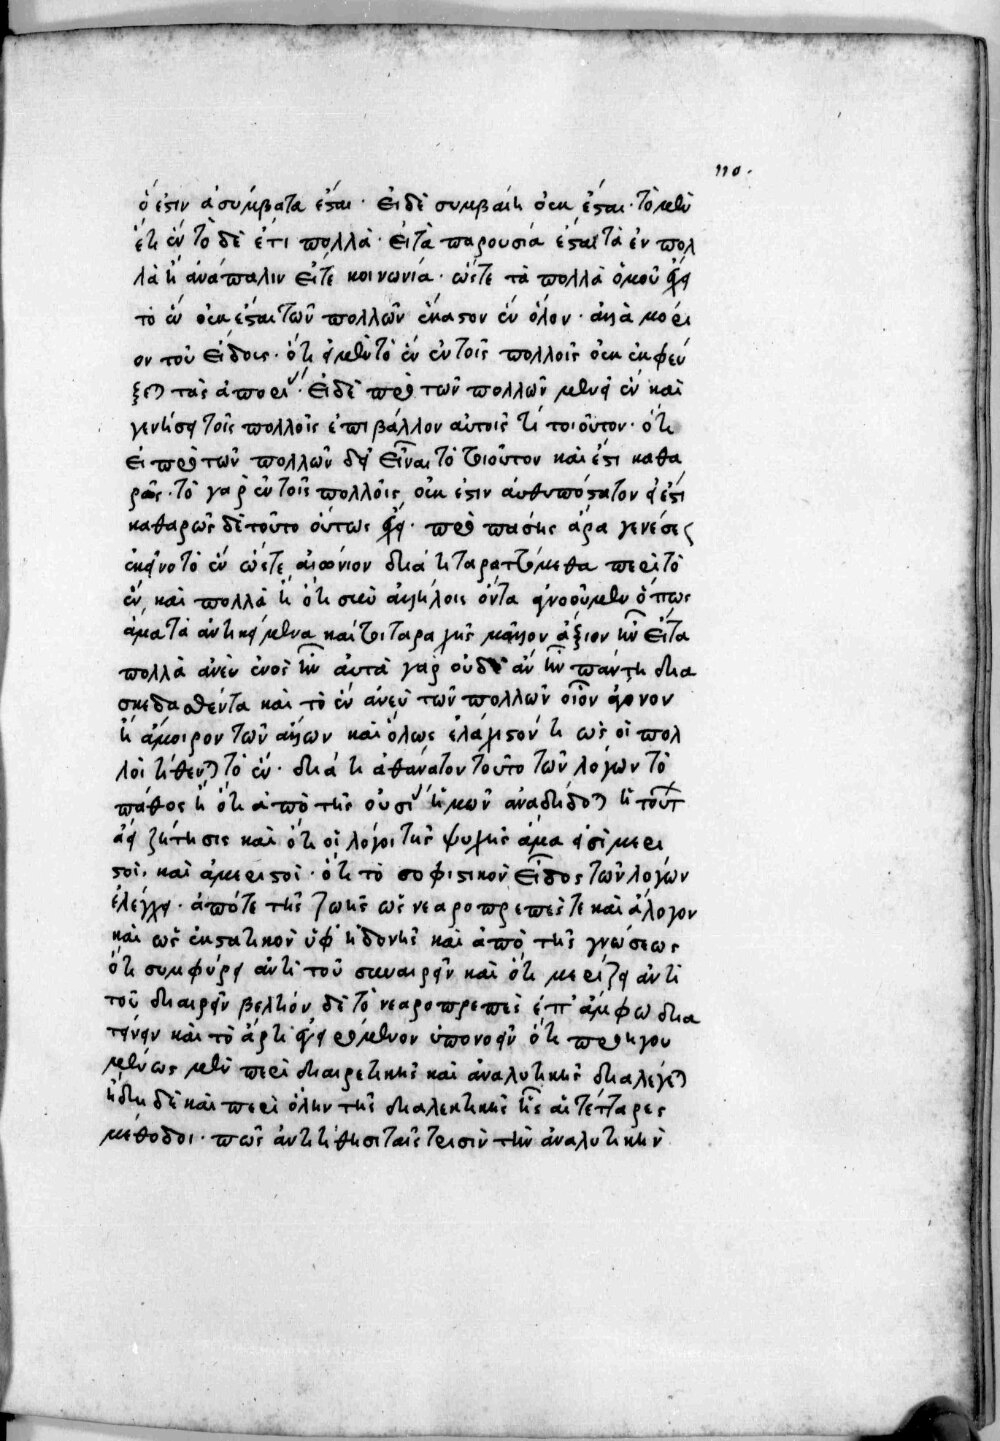 110.
ὅ ἐστιν ἀσύμβατα ἔσται · εἰ δὲ συμβαίη οὐκ ἔσται · τὸ μὲν
ἔτι ἓν τὸ δὲ ἔτι πολλὰ · εἴτα παρουσία ἔσται τὰ ἓν πολ
λὰ ἢ ἀνάπαλιν εἴτε κοινωνία · ὥστε τὰ πολλὰ ὁμοῦ
τὸ ἓν οὐκ ἔσται τῶν πολλῶν ἕκαστον ἓν ὅλον · ἀλλὰ μόρι
ον τοῦ εἴδους · ὅτι εἰ μὲν τὸ ἓν ἐν τοῖς πολλοῖς οὐκ ἐκφεύ
ξεται τὰς ἀπορίας · εἰ δὲ πρὸ τῶν πολλῶν μένει ἓν καὶ
γεννήσει τοῖς πολλοῖς ἐπιβάλλον αὐτοῖς τί τοιοῦτον · ὅτι
εἰ πρὸ τῶν πολλῶν δεῖ εἶναι τὸ τοιοῦτον καὶ ἔστι καθα
ρῶς · τὸ γὰρ ἐν τοῖς πολλοῖς οὐκ ἔστιν αὐθυπόστατον εἰ ἔστι
καθαρῶς δὲ τοῦτο οὕτως ἔχει · πρὸ πάσης ἄρα γενέσεως
ἐκεῖνο τὸ ἓν ὥστε αἰώνιον διὰ τί ταραττόμεθα περὶ τὸ
ἓν καὶ πολλὰ ἢ ὅτι σὺν ἀλλήλοις ὄντα ἀγνοοῦμεν ὅπως
ἅμα τὰ ἀντικείμενα καίτοι ταραχῆς μᾶλλον ἄξιον ἦν εἰ τὰ
πολλὰ ἄνευ ἑνὸς ἦν αὐτὰ γὰρ οὐδὲ ἂν ἦν πάντῃ δια
σκεδασθέντα καὶ τὸ ἓν ἄνευ τῶν πολλῶν οἷον ἄγονον
ἢ ἄμοιρον τῶν ἄλλων καὶ ὅλως ἐλάχιστόν τι ὡς οἱ πολ
λοὶ τίθενται τὸ ἕν · διὰ τί ἀθάνατον τοῦτο τῶν λόγων τὸ
πάθος ἢ ὅτι ἀπὸ τῆς οὐσίας ἡμῶν ἀναδίδοται ἡ τούτων
ἀεὶ ζήτησις καὶ ὅτι οἱ λόγοι τῆς ψυχῆς ἅμα εἰσὶ μερι
στοὶ · καὶ ἀμέριστοι · ὅτι τὸ σοφιστικὸν εἶδος τῶν λόγων
ἐλέγχει · ἀπό τε τῆς ζωῆς ὡς νεαροπρεπές τε καὶ ἄλογον
καὶ ὡς ἐκστατικὸν ὑφ' ἡδονῆς καὶ ἀπὸ τῆς γνώσεως
ὅτι συμφύρει ἀντὶ τοῦ συναιρεῖν καὶ ὅτι μερίζει ἀντὶ
τοῦ διαιρεῖν βέλτιον δὲ τὸ νεαροπρεπὲς ἐπ' ἄμφω δια
τείνειν καὶ τὸ ἄρτι εἰρημένον ὑπονοεῖν ὅτι προηγου
μένως μὲν περὶ διαιρετικῆς καὶ ἀναλυτικῆς διαλέγεται
ἤδη δὲ καὶ περὶ ὅλην τῆς διαλεκτικῆς ἧς αἱ τέτταρες
μέθοδοι · πῶς ἀντιτίθησι ταῖς τρισὶν τὴν ἀναλυτικήν